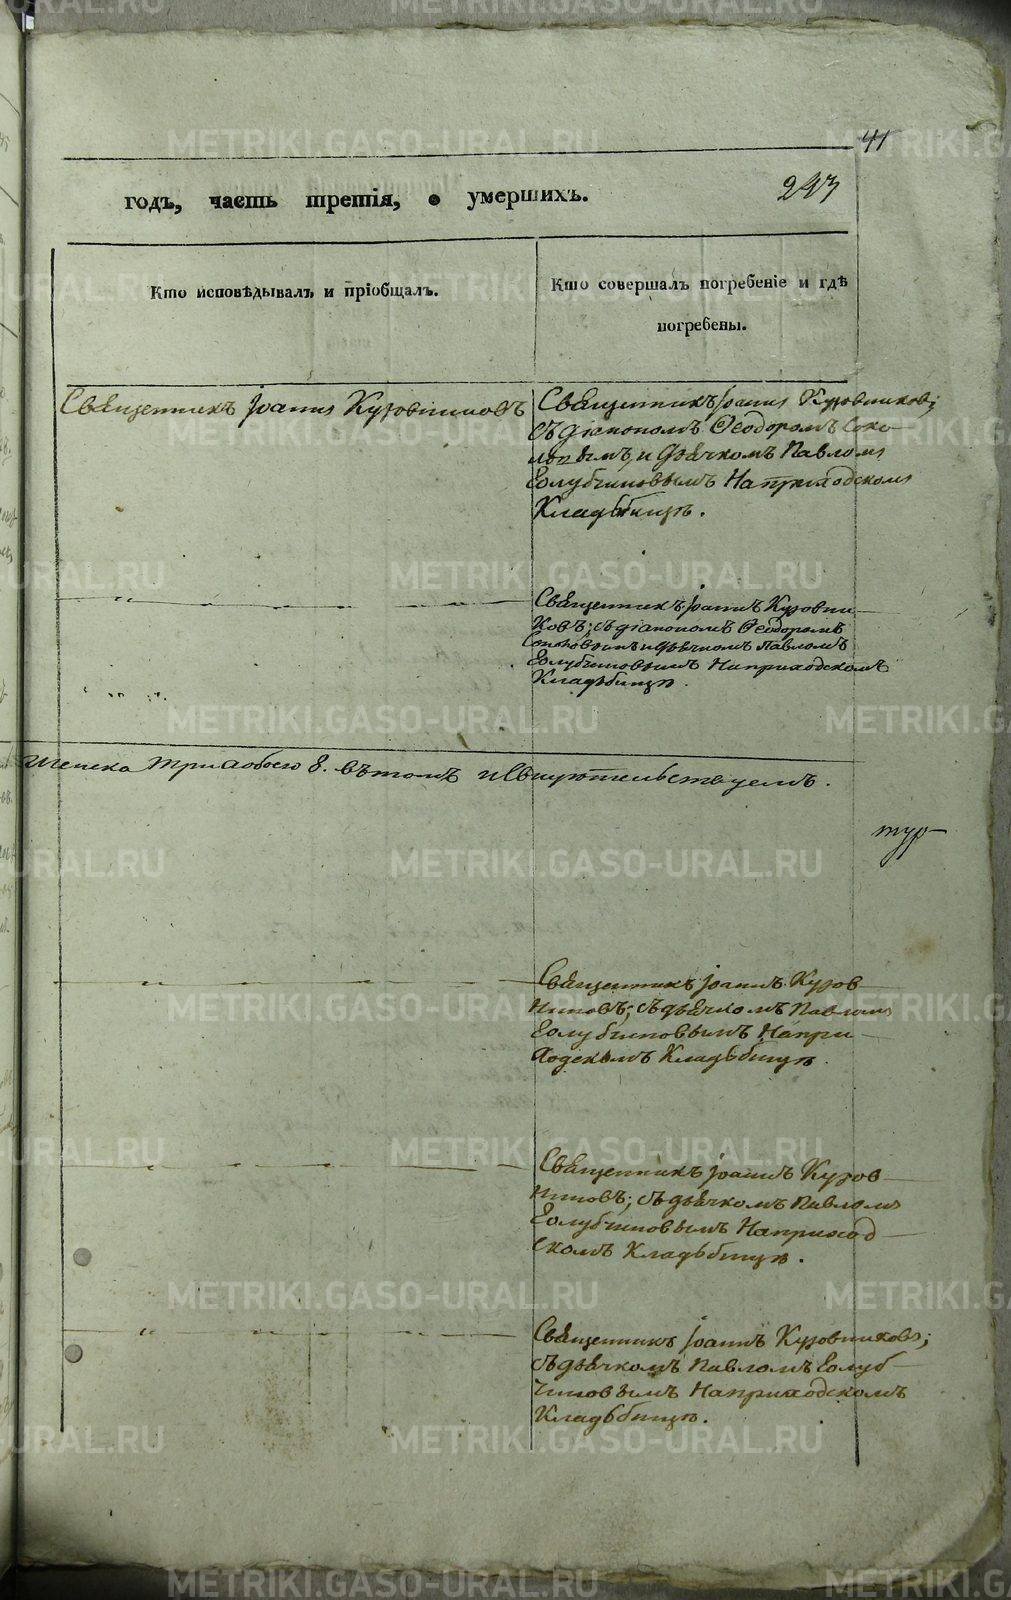 41
243
годъ, часть третія, о умершихъ.
Кто исповѣдывалъ и пріобщалъ.
Кто совершалъ погребеніе и гдѣ
погребены.
Священникъ Іоаннъ Кузовниковъ
Священникъ Іоаннъ Кузовниковъ;
съ діакономъ Ѳеодоромъ Соко-
ловымъ, и дьячкомъ Павломъ
Голубчиковымъ На приходскомъ
Кладьбищѣ.
Священникъ Іоаннъ Кузовни
ковъ; съ діакономъ Ѳеодоромъ
Соколовымъ и дьячкомъ Павломъ
Голубчиковымъ На приходскомъ
Кладьбищѣ.
женска три обоего 8. вътомъ и Свидѣтельствуемъ.
тур-
Священникъ Іоаннъ Кузов
никовъ; съ дьячкомъ Павломъ
Голубчиковымъ На при
ходскомъ Кладьбищѣ.
Священникъ Іоаннъ Кузов
никовъ; съ дьячкомъ Павломъ
Голубчиковымъ На приход
скомъ Кладьбищѣ.
Священникъ Іоаннъ Кузовниковъ;
съ дьячкомъ Павломъ Голуб
чиковымъ На приходскомъ
Кладьбищѣ.
METRIKI.GASO-URAL.RU